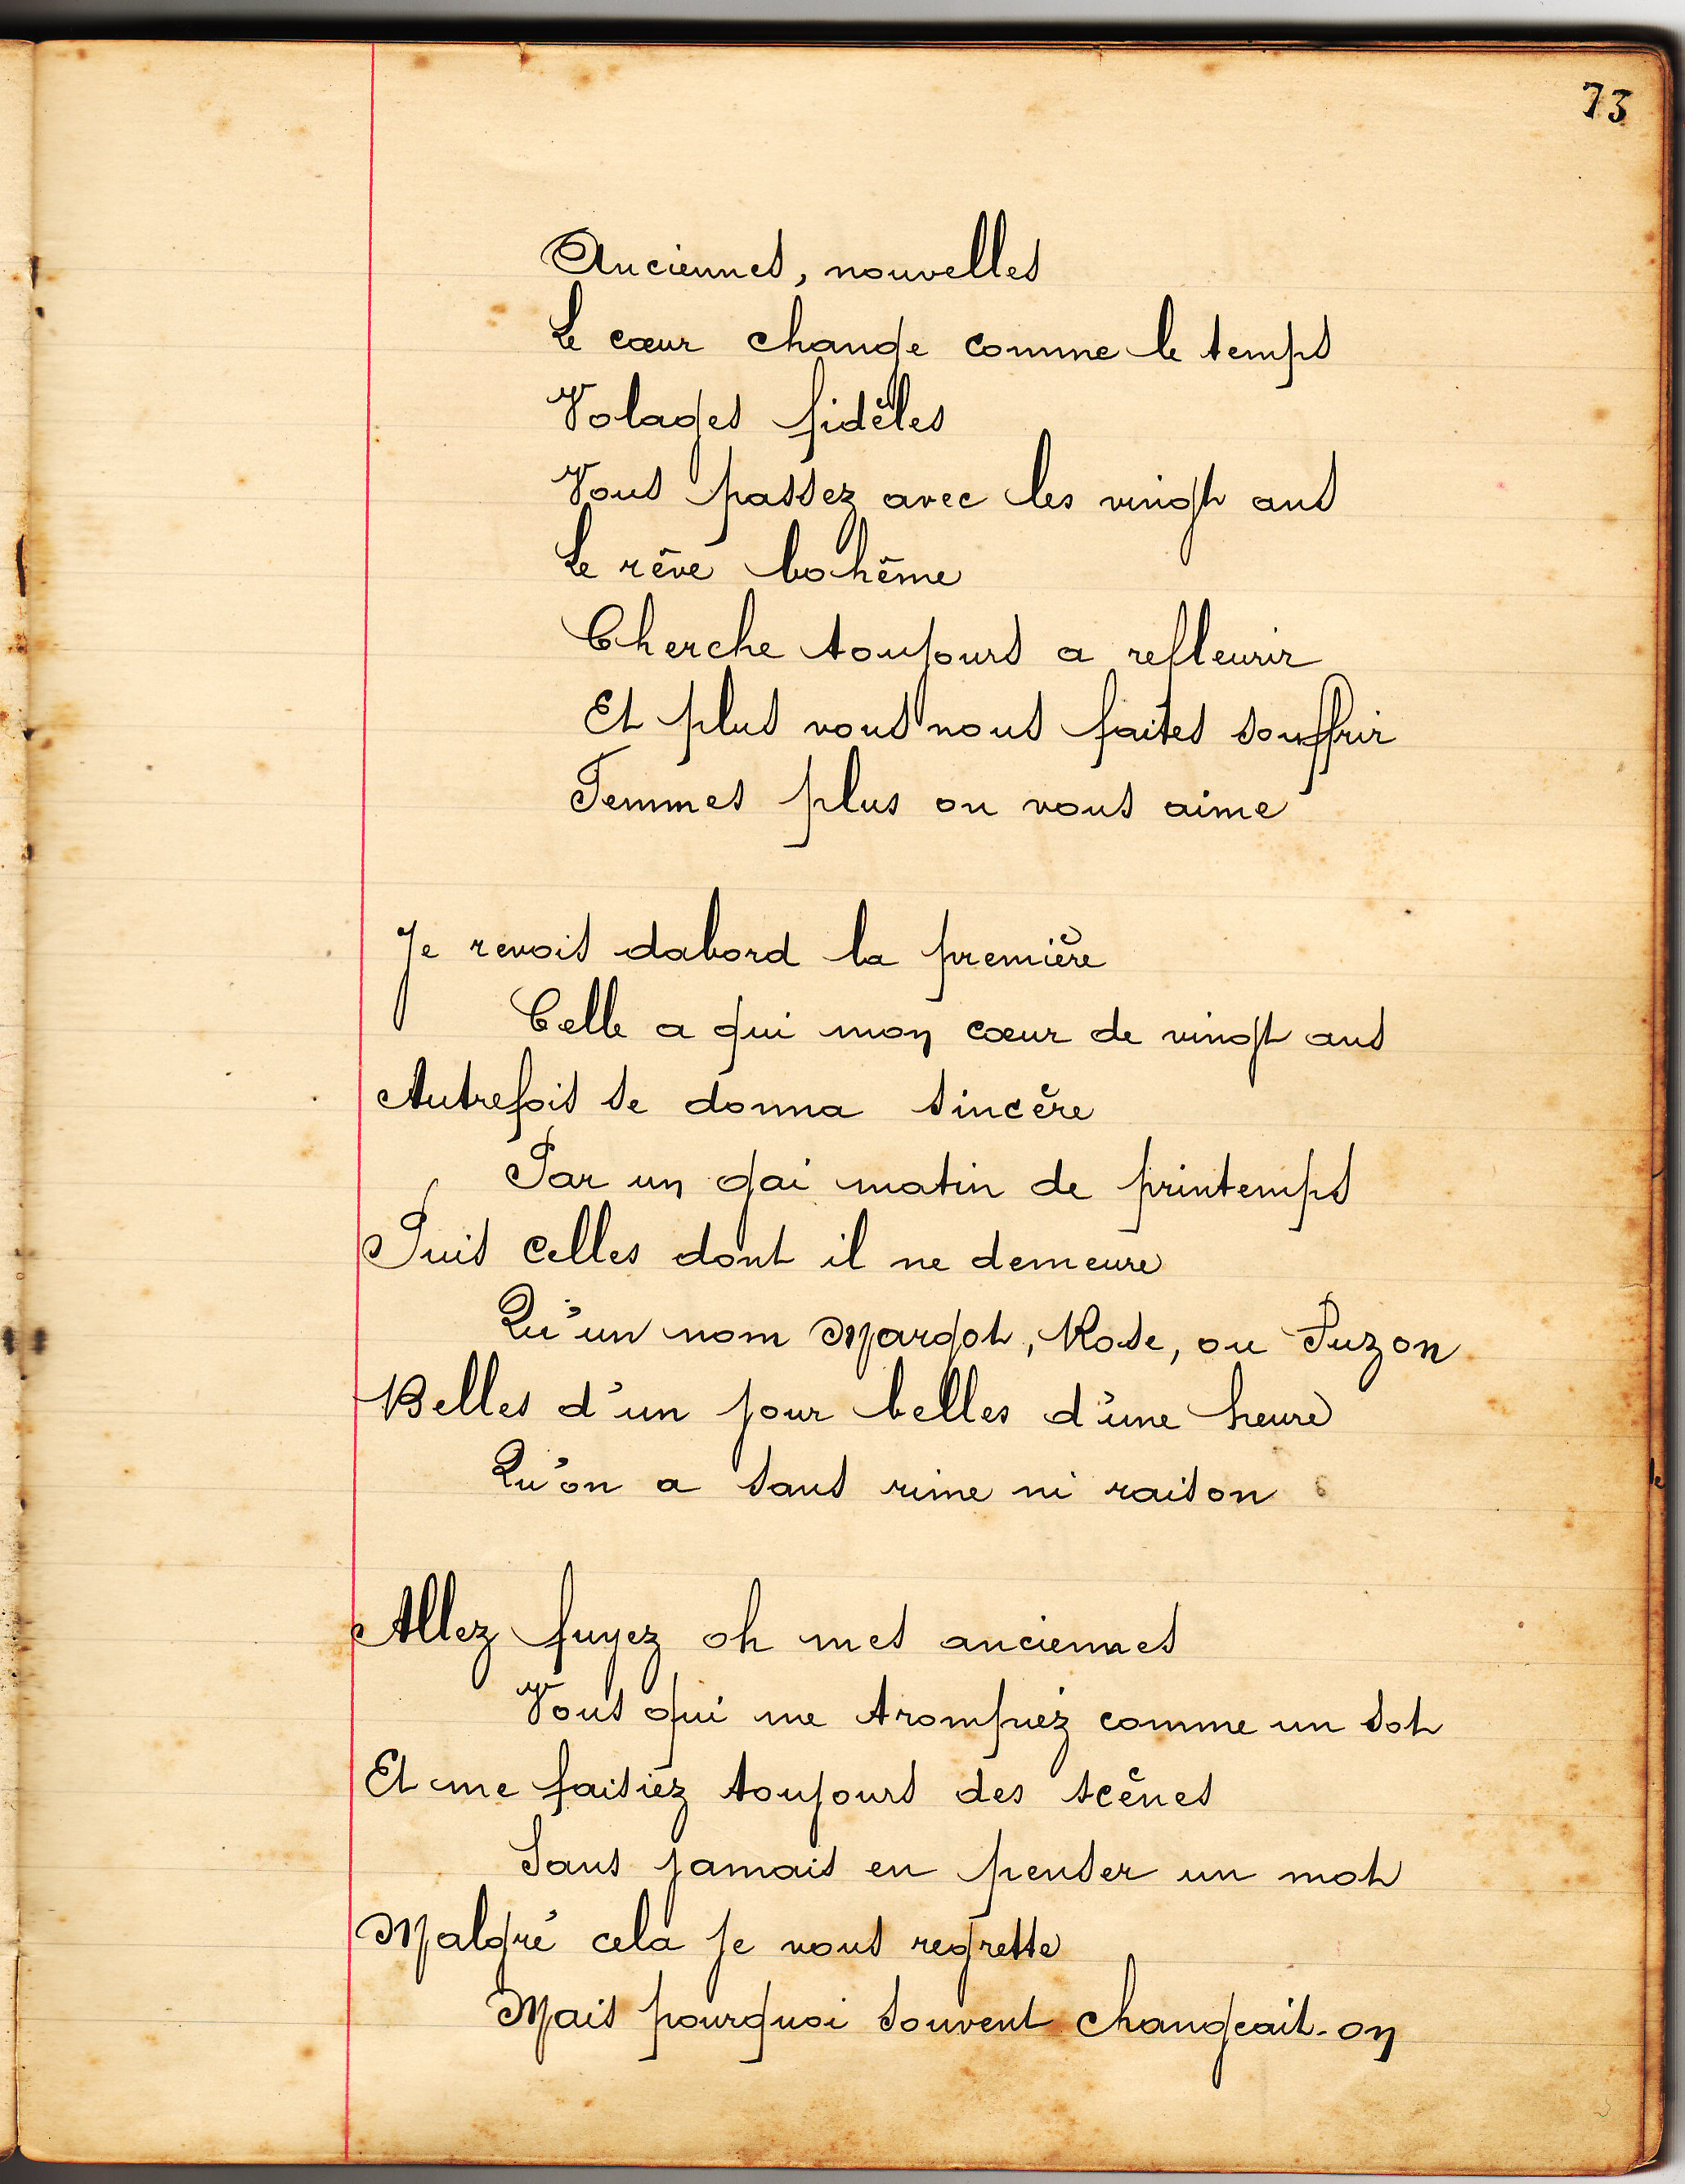 73
Anciennes, nouvelles
Le cœur change comme le temps
Volages fidèles
Vous passez avec les vingt ans
Le rêve bohème
Cherche toujours a refleurir
Et plus vous nous faites souffrir
Femmes plus on vous aime
Je revois dabord la première
Celle a qui mon cœur de vingt ans
Autrefois se donna sincère
Par un gai matin de printemps
Puis celles dont il ne demeure
Qu'un nom Margot, Rose, ou Suzon
Belles d'un jour belles d'une heure
Qu'on a sans rime ni raison
Allez fuyez oh mes anciennes
Vous qui me trompiez comme un sot
Et me faisiez toujours des scènes
Sans jamais en penser un mot
Malgré cela je vous regrette
Mais pourquoi souvent changeait-on